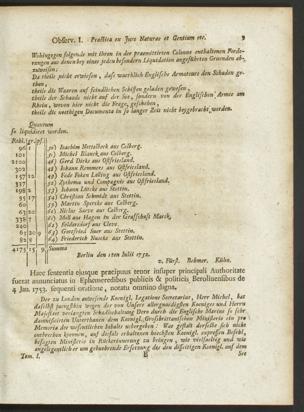 Observ. I. Practica ex Jure Naturae et Gentium etc. 9
Wohingegen folgende mit ihren in der praemittirten Colonne enthaltenen Forde-
rungen aus denen bey eines jeden besondern Liquidation angeführten Gruenden ab-
zuweisen:
Da theils nicht erwiesen, dass wuerklich Englische Armateurs den Schaden ge-
than,
theils die Waaren auf feindlichen Schiffen geladen gewesen,
theils der Schade nicht auf der See, sondern von der Englischen Armee am
Rhein, wovon hier nicht die Frage, geschehen,
theils die noethigen Documenta in so langer Zeit nicht beygebracht worden.
Quantum
so liquidiret worden.
Rthl. gr. pf.
50) Joachim Nettelbeck aus Colberg.
51) Michel Blanck aus Colberg.
2100 48) Gerd Dirks aus Ostfriesland.
302 49) Johann Remmers aus Ostfriesland.
157 12 Fede Focken Lübling aus Ostfriesland.
337 52) Zythema und Compagnie aus Ostfriesland.
198 2 53) Johann Lörcke aus Stettin.
95 17 54) Christian Schmidt aus Stettin.
60 59) Martin Spercke aus Colberg.
63 20 Niclas Sarve aus Colberg.
in der Grafschaft Marck,
240 aus Cleve.
65 20 9 63) Gottfried Suer aus Stettin.
82 8 64) Friederich Nuscke aus Stettin.
4175 15 9 Summa
Berlin den 1ten Julii 1752.
v. Fürst. Behmer. Kühn.
Haec sententia ejusque praecipuus tenor insuper principali Authoritate
fuerat annunciatus in Ephemeredibus publicis & politicis Berolinensibus de
4 Jan. 1753. sequenti oratione, notatu omnino digna.
Der zu London anwesende Koenigl. Legations Secretarius, Herr Michel, hat
daselbst juengsthin wegen der von Unsers allergnädigsten Koeniges und Herrn
Majestaet verlangten Schadloshaltung Dero durch die Englische Marine so sehr
damnificirten Unterthanen dem Koenigl. Grossbrittannischen Ministerio ein pro
Memoria des wesentlichen Inhalts uebergeben: Was gestalt derselbe sich nicht
entbrechen koennte, auf deshalb erhaltenen hoechsten Koenigl. expressen Befehl,
besagten Ministerio in Rückerinnerung zu bringen, wie vielfaeltig und wie
angelegentlich er um gebuehrende Ersetzung des den diesseitigen Koenigl. auf dem
Tom. I. B See